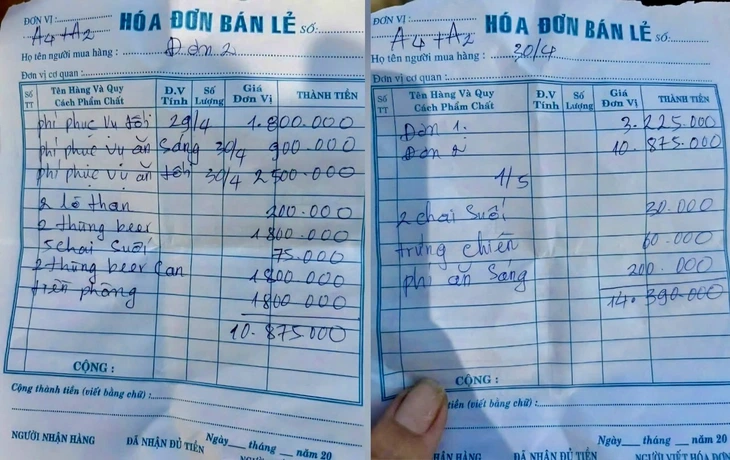 ĐƠN VỊ :
HÓA ĐƠN BÁN LẺ Số:
A4+A2
Họ tên người mua hàng : Đơn 2
Đơn vị cơ quan :
Số TT Tên Hàng Và Quy Cách Phẩm Chất Đ.V Tính Số Lượng Giá Đơn Vị THÀNH TIỀN
phí phục vụ tối 29/4 1.800.000
phí phục vụ ăn sáng 30/4 900.000
phí phục vụ ăn tối 30/4 2500.000
2 lò than 200.000
2 thùng beer 1800.000
5 chai suối 75.000
2 thùng beer Can 1800.000
tiền phòng 1800.000
10.875.000
CỘNG :
Cộng thành tiền (viết bằng chữ) :
Ngày__ tháng __ năm 20
NGƯỜI NHẬN HÀNG ĐÃ NHẬN ĐỦ TIỀN
ĐƠN VỊ :
HÓA ĐƠN BÁN LẺ Số:
A4+A2
Họ tên người mua hàng : 30/4
Đơn vị cơ quan :
Số TT Tên Hàng Và Quy Cách Phẩm Chất Đ.V Tính Số Lượng Giá Đơn Vị THÀNH TIỀN
Đơn 1. 3.225.000
Đơn 2 10.875.000
1/5
2 chai suối 30.000
trứng chiên 60.000
phí ăn sáng 200.000
14.390.000
CỘNG :
tiền (viết bằng chữ) :
Ngày__ tháng __ năm 20
NHẬN HÀNG ĐÃ NHẬN ĐỦ TIỀN NGƯỜI VIẾT HÓA ĐƠN